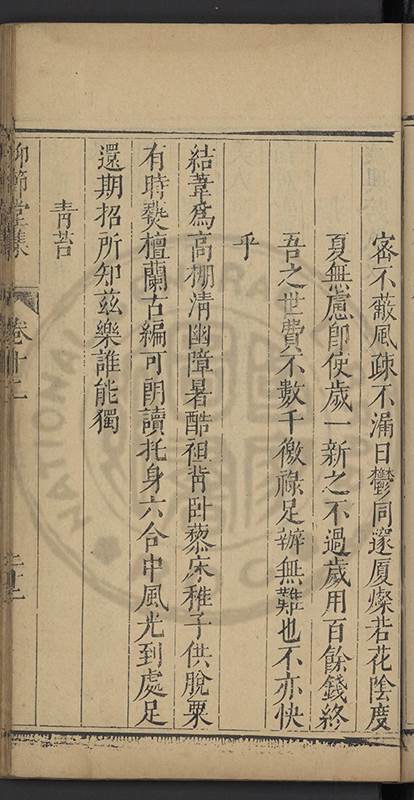 密不蔽風疎不漏日鬱同邃厦燦若花陰度
夏無慮卽使歲一新之不過歲用百餘錢終
吾之世費不數千徼祿足辦無難也不亦快
乎
結葦爲高棚清幽障暑酷袒背卧藜床稚子供脫粟
有時爇檀蘭古編可朗讀托身六合中風光到處足
還期招所知兹樂誰能獨
青苔
仰節堂集 卷十二